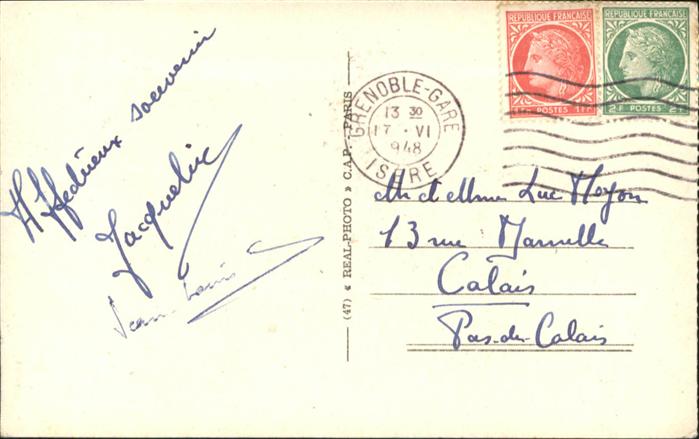 Affectueux souvenir
Jacqueline
Jean-Louis
(47) « REAL-PHOTO » C.A.P. - PARIS
GRENOBLE-GARE
13 30
17 · VI
948
ISÈRE
REPUBLIQUE FRANÇAISE
POSTES 1F
REPUBLIQUE FRANÇAISE
2F POSTES 2F
Mr et Mme Luc Noyon
13 rue
Calais
Pas-de-Calais